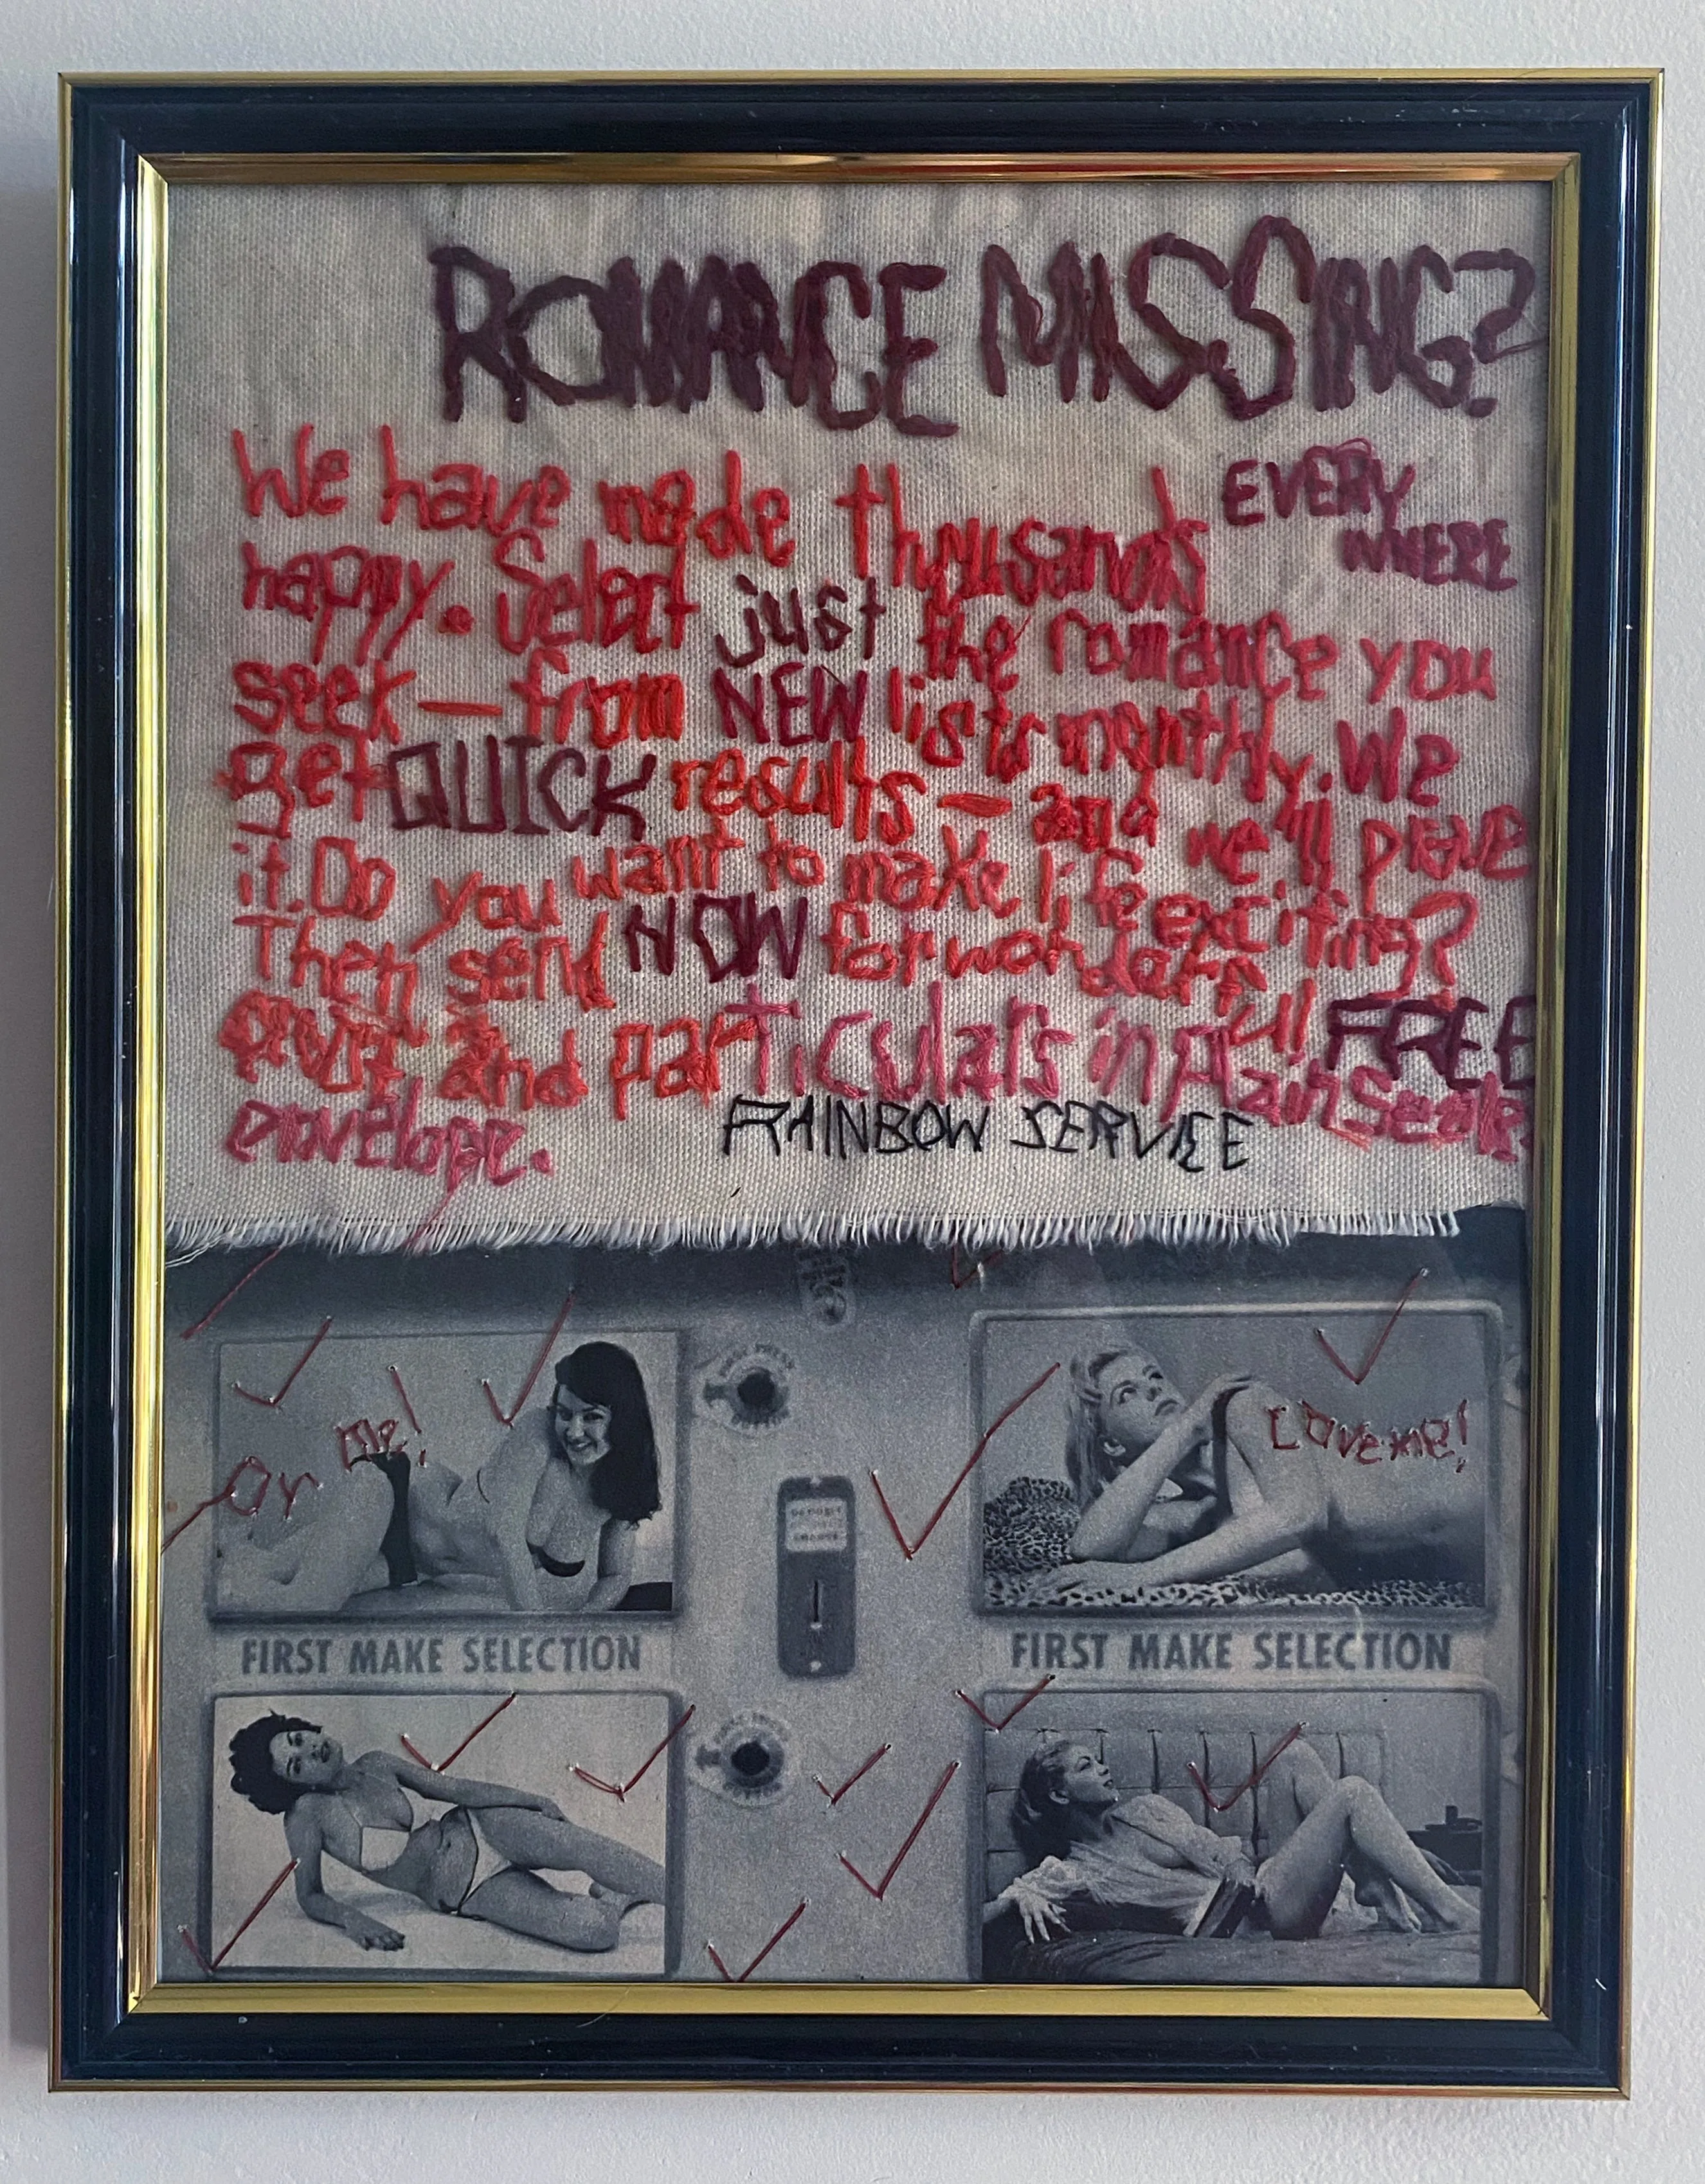 ROMANCE MISSING?
We have made thousands EVERY
WHERE
happy. Select just the romance you
seek — from NEW lists monthly. We
get QUICK results — and we'll prove
it. Do you want to make life exciting?
Then send NOW for wonderful FREE
proof and particulars in plain seale
envelope.
RAINBOW SERVICE
Or me!
Love me!
DEPOSIT
FIRST MAKE SELECTION
FIRST MAKE SELECTION